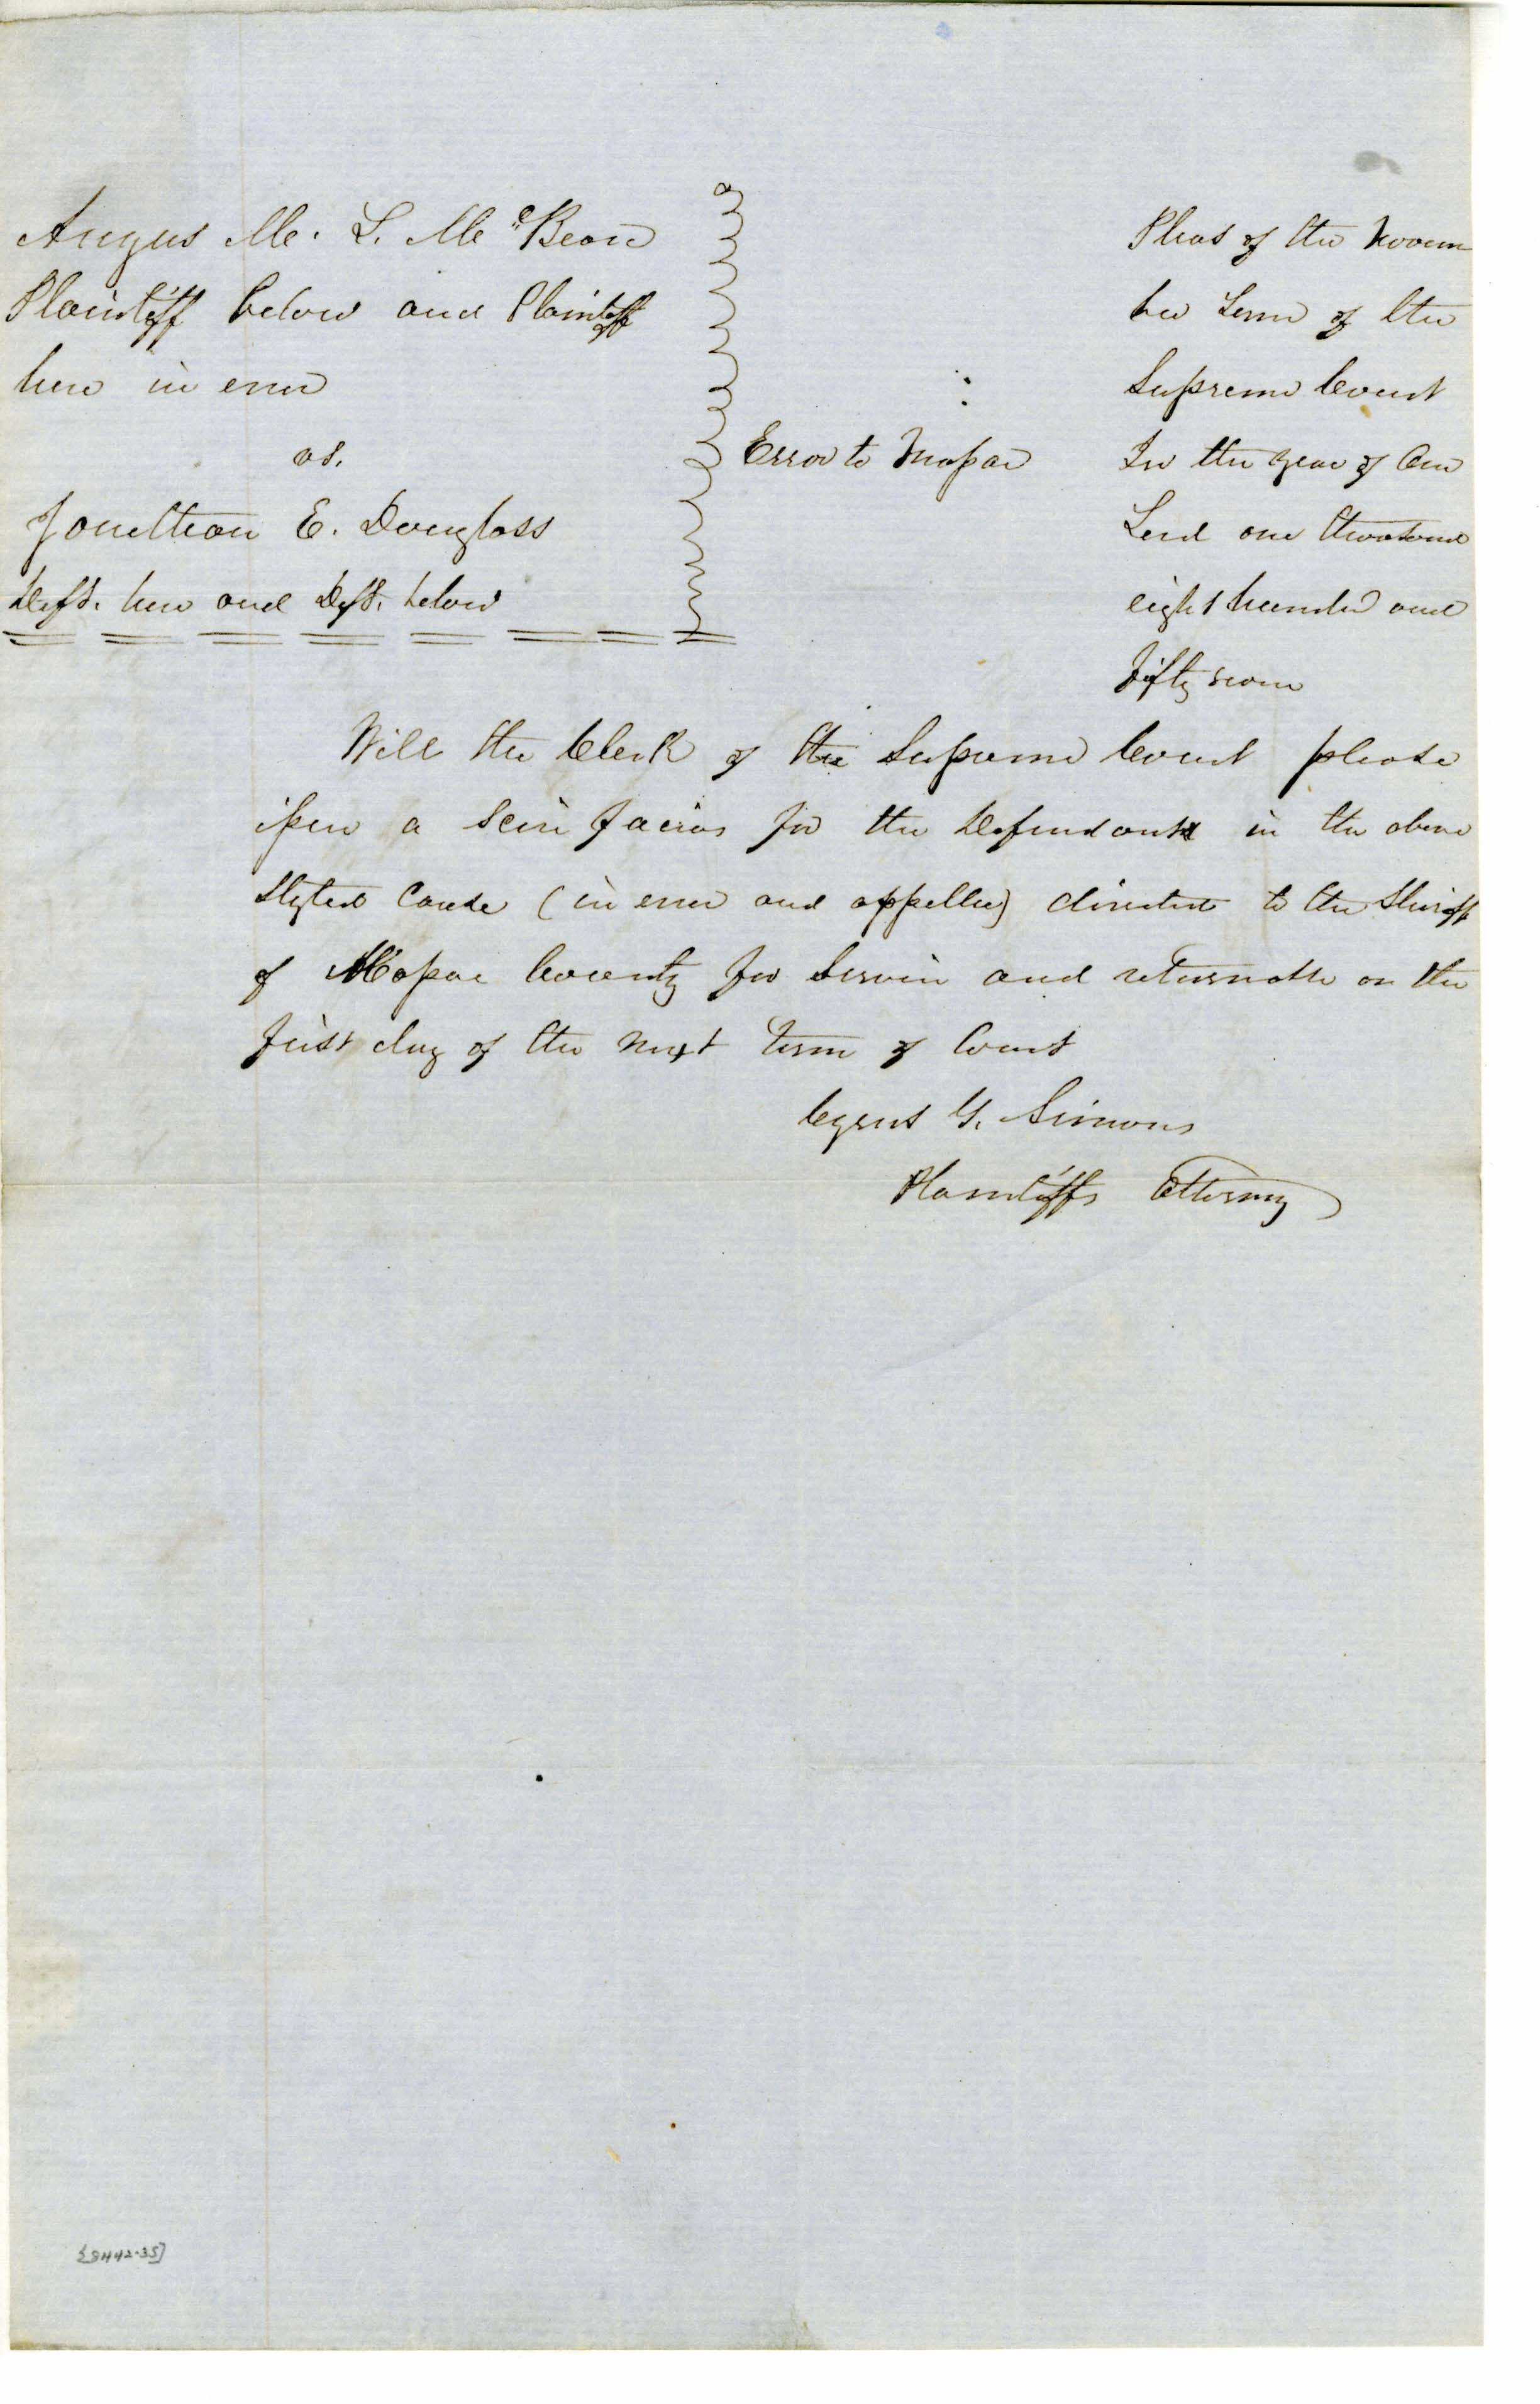 Angus Mc. L. McBean
Plaintiff below and Plaintiff
here in error
vs.
Jonathan E. Douglass
Deft. here and Deft. below
Error to Massac
Pleas of the Novem
ber Term of the
Supreme Court
In the year of Our
Lord one thousand
eight hundred and
fifty seven
Will the Clerk of the Supreme Court please
issue a Scire facias for the Defendant in the above
styled Cause (in error and appellee) directed to the Sheriff
of Massac County for Service and returnable on the
first day of the next term of Court
Cyrus G. Simons
Plaintiffs Attorney
[8442-35]